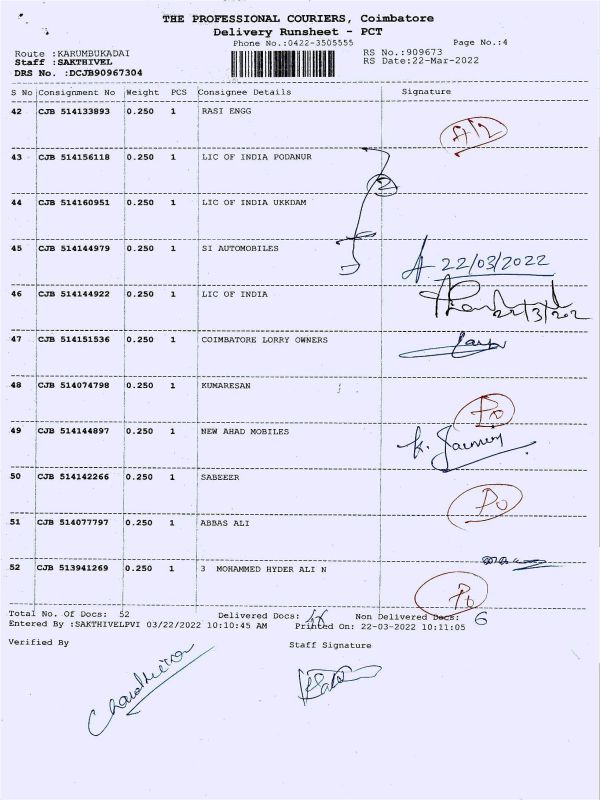 THE PROFESSIONAL COURIERS, Coimbatore
Delivery Runsheet - PCT
Phone No.:0422-3505555
Page No.:4
Route :KARUMBUKADAI
RS No.:909673
Staff :SAKTHIVEL
RS Date:22-Mar-2022
DRS No. :DCJB90967304
S No Consignment No Weight PCS Consignee Details Signature
42 CJB 514133893 0.250 1 RASI ENGG
43 CJB 514156118 0.250 1 LIC OF INDIA PODANUR
44 CJB 514160951 0.250 1 LIC OF INDIA UKKDAM
45 CJB 514144979 0.250 1 SI AUTOMOBILES
22/03/2022
46 CJB 514144922 0.250 1 LIC OF INDIA
22/3/202
47 CJB 514151536 0.250 1 COIMBATORE LORRY OWNERS
48 CJB 514074798 0.250 1 KUMARESAN
49 CJB 514144897 1 0.250 NEW AHAD MOBILES
50 CJB 514142266 0.250 1 SABEEER
51 CJB 514077797 0.250 1 ABBAS ALI
52 CJB 513941269 0.250 1 3 MOHAMMED HYDER ALI N
Total No. Of Docs: 52 Delivered Docs: Non Delivered Docs: 6
Entered By :SAKTHIVELPVI 03/22/2022 10:10:45 AM Printed On: 22-03-2022 10:11:05
Verified By
Staff Signature